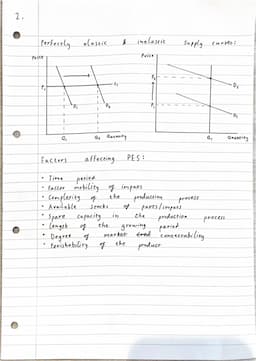 2.
Perfectly elastic & inelastic supply curves:
Price
Price
P₁
S₁
D₁
D₂
Q₁
Q₂
Quantity
P₂
P₁
D₂
D₁
Q₁
Quantity
Factors affecting PES:
• Time period
• Factor mobility of inputs
• Complexity of the production process
• Available stocks of parts/inputs
• Spare capacity in the production process
• Length of the growing period
• Degree of market contestability
• Perishability of the product